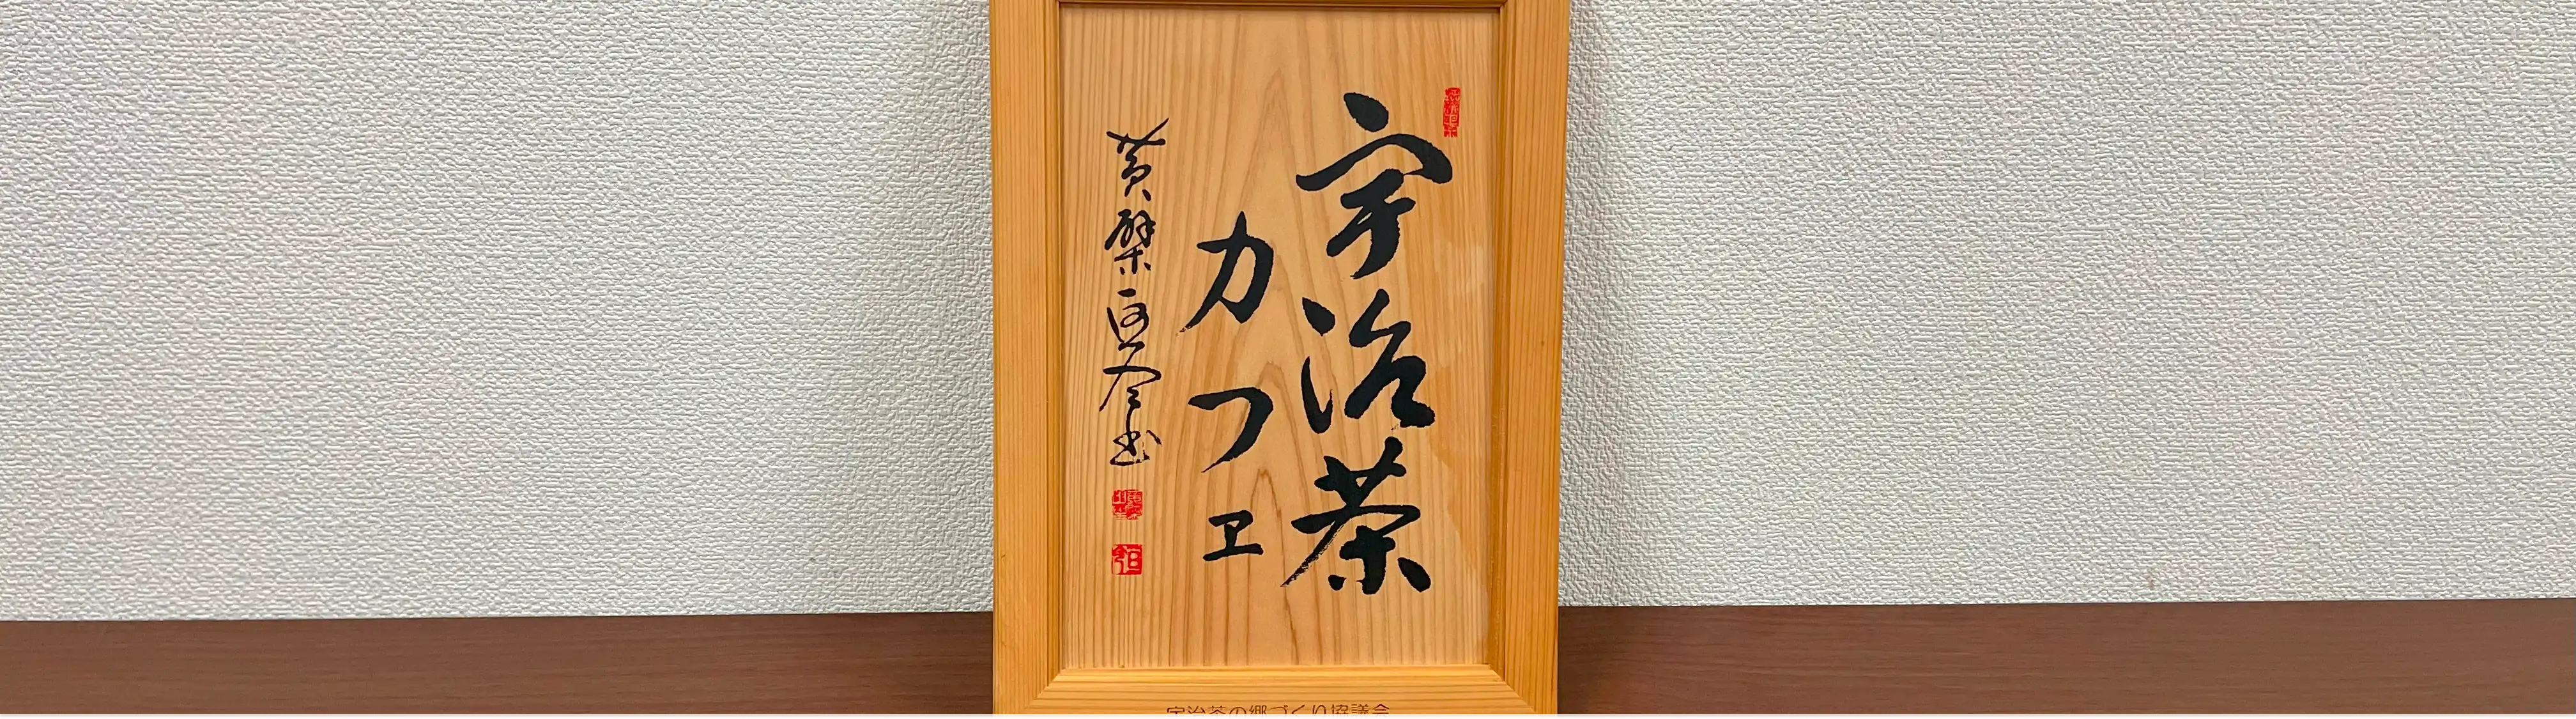 宇治茶
カフェ
黄檗
宇治茶の郷づくり協議会